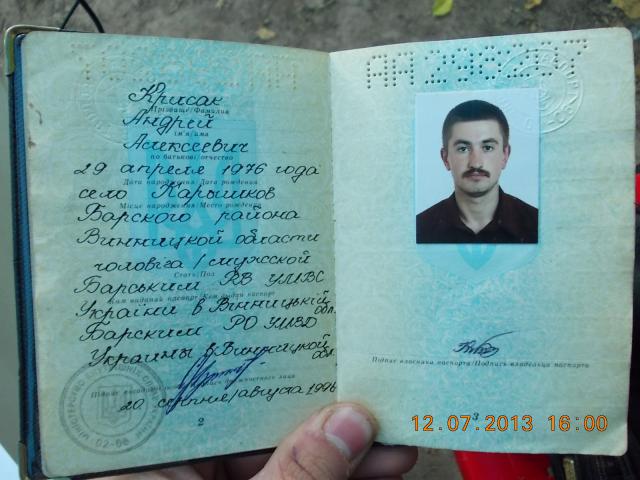 Крисак
Прізвище/Фамилия
Андрей
ім'я/имя
Алексеевич
по батькові/отчество
29 апреля 1976 года
Дата народження/Дата рождения
село Карышков
Місце народження/Место рождения
Барского района
Винницкой области
чоловіча/мужской
Стать/Пол
Барським РВ УМВС
Ким виданий паспорт/Кем выдан паспорт
України в Вінницькій обл.
Барским РО УМВД
Украины в Винницкой обл.
20 серпня/августа 1996
2
Підпис власника паспорта/Подпись владельца паспорта
3
12.07.2013 16:00